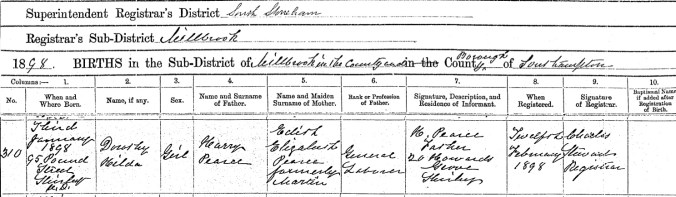 Superintendent Registrar's District South Stoneham
Registrar's Sub-District Millbrook
1898. BIRTHS in the Sub-District of Millbrook in the County and in the County Borough of Southampton
Columns:— 1. 2. 3. 4. 5. 6. 7. 8. 9. 10.
No. When and Where Born. Name, if any. Sex. Name and Surname of Father. Name and Maiden Surname of Mother. Rank or Profession of Father. Signature, Description, and Residence of Informant. When Registered. Signature of Registrar. Baptismal Name if added after Registration of Birth.
310
Third January 1898
95 Pound Street Shirley
Dorothy Hilda
Girl
Harry Pearce
Edith Elizabeth Pearce formerly Martin
General Laborer
H. Pearce
Father
20 Howards Grove
Shirley
Twelfth February 1898
Charles Steward
Registrar